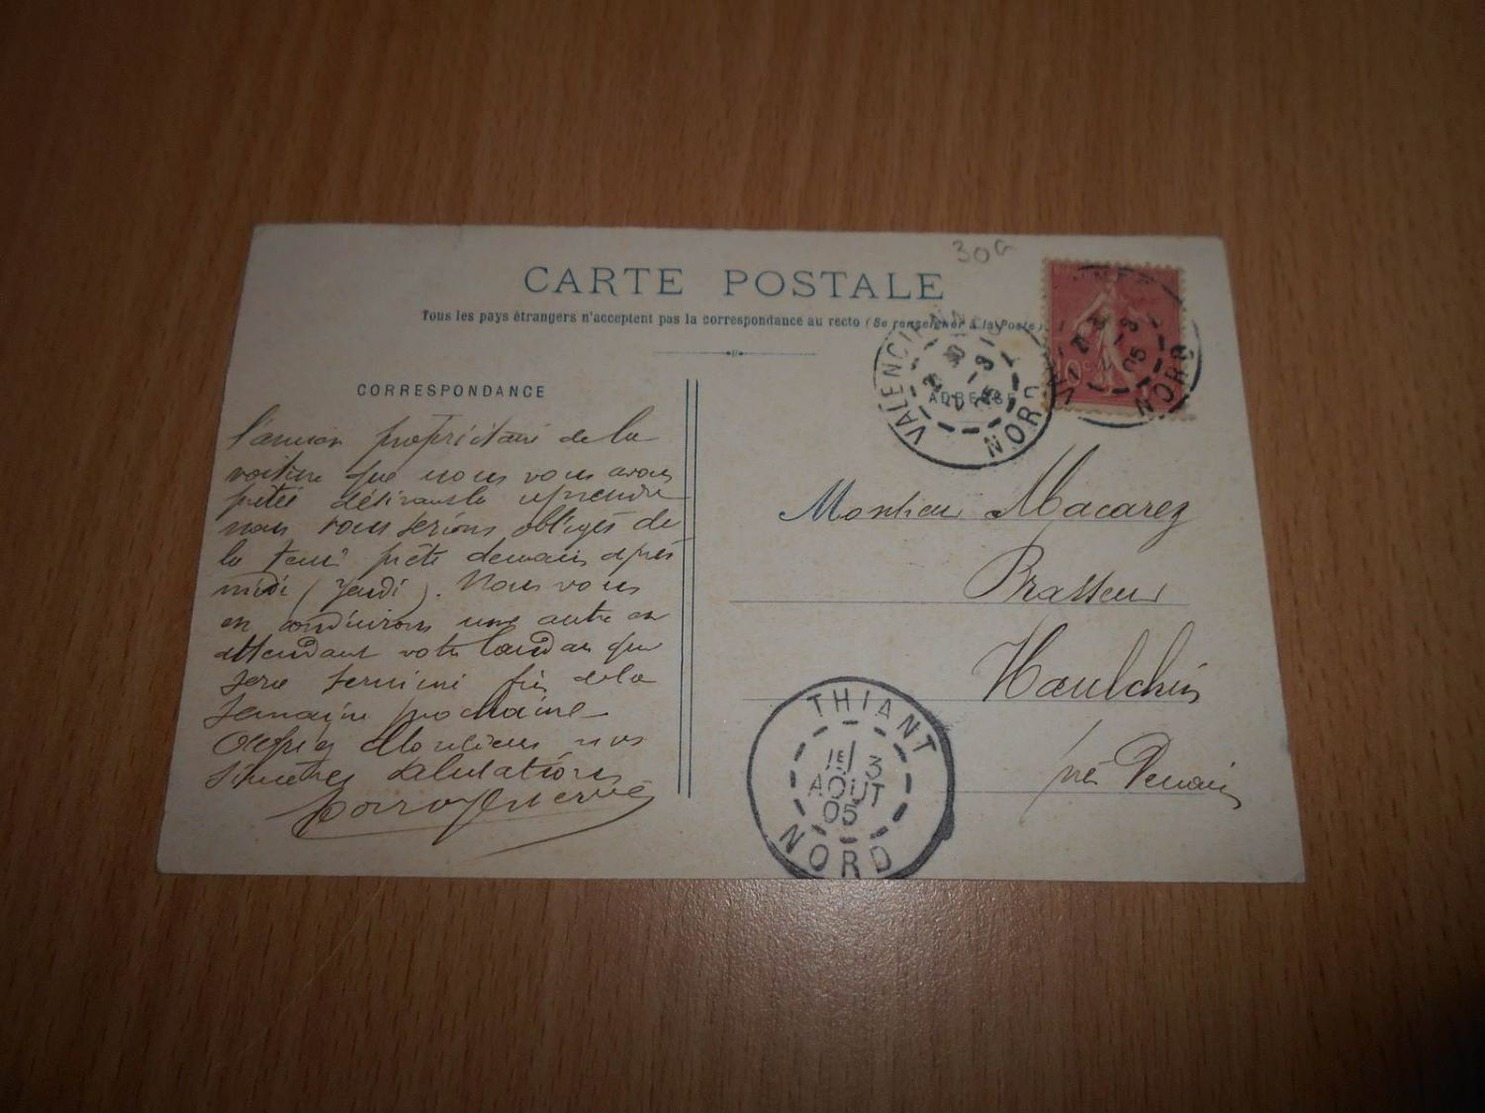 30
CARTE POSTALE
Tous les pays étrangers n'acceptent pas la correspondance au recto (Se renseigner à la Poste)
CORRESPONDANCE
l'ancien propriétaire de la
voiture que nous vous avons
prêtée désirant la reprendre
nous vous serions obligés de
la tenir prête demain après
midi (Jeudi). Nous vous
en conduirons une autre en
attendant votre landau qui
sera terminé fin de la
semaine prochaine
Agréez Monsieur nos
sincères salutations
ADRESSE
VALENCIENNES
NORD
10
NORD
Monsieur Macarez
Brasseur
Haulchin
près Denain
THIANT
3
AOUT
05
NORD